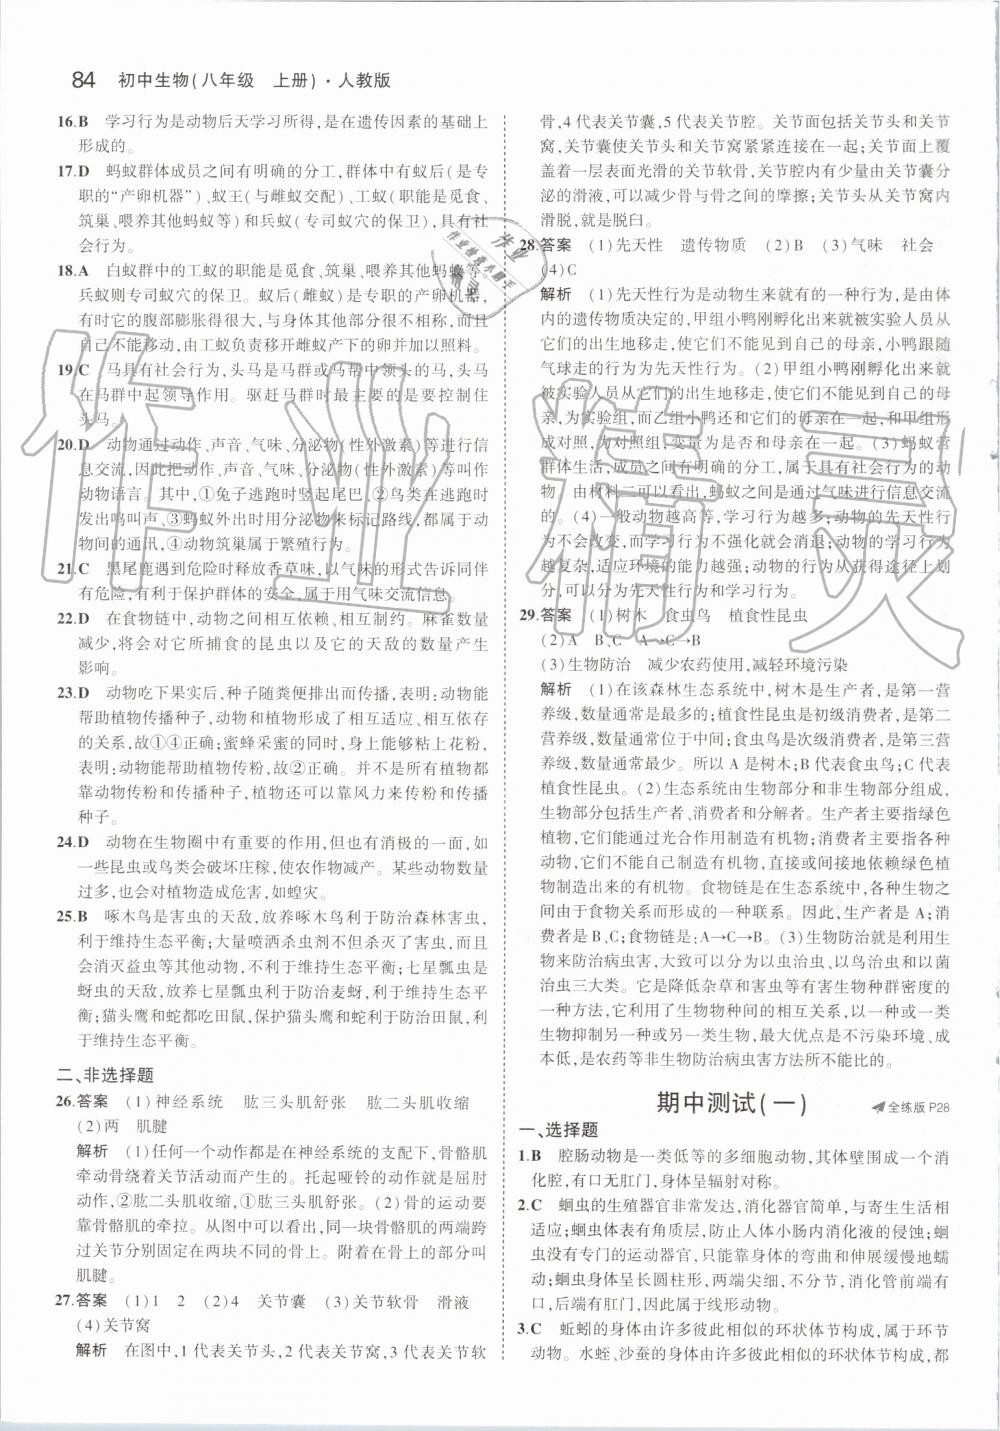 84 初中生物(八年级 上册)·人教版
16.B 学习行为是动物后天学习所得,是在遗传因素的基础上
形成的。
17.D 蚂蚁群体成员之间有明确的分工,群体中有蚁后(是专
职的“产卵机器”)、蚁王(与蚁后交配)、工蚁(职能是觅食、
筑巢、喂养其他蚂蚁等)和兵蚁(专司蚁穴的保卫)。具有社
会行为。
18.A 白蚁群中的工蚁的职能是觅食、筑巢、喂养其他蚂蚁等。
兵蚁则专司蚁穴的保卫。蚁后(雌蚁)是专职的产卵机器,
有时它的腹部膨胀得很大,与身体其他部分很不相称,以致
自己不能移动,由工蚁负责移开雌蚁产下的卵并加以照料。
19.C 马具有社会行为,头马是马群或马帮中领头的马,头马
在马群中起领导作用。驱赶马群时最主要的是要控制住
头马。
20.D 动物通过动作、声音、气味、分泌物(性外激素)等进行信
息交流,因此把动作、声音、气味、分泌物(性外激素)等叫作
动物语言。其中,①兔子逃跑时竖起尾巴、②鸟类在逃跑时
发出鸣叫声、③蚂蚁外出时分泌物来标记路线,都属于动
物间的通讯,④动物筑巢属于繁殖行为。
21.C 黑尾鹿遇到危险时释放香草味,以气味的形式告诉同伴
有危险,有利于保护群体的安全,属于用气味交流信息。
22.D 在食物链中,动物之间相互依赖、相互制约。麻雀数量
减少,将会对它所捕食的昆虫以及它的天敌的数量产生
影响。
23.D 动物吃下果实后,种子随粪便排出而传播,表明:动物能
帮助植物传播种子,动物和植物形成了相互适应、相互依存
的关系,故①④正确;蜜蜂采蜜的同时,身上能粘上花粉,
表明:动物能帮助植物传粉,故②正确。并不是所有植物都
靠动物传粉和传播种子,植物还可以靠风力来传粉和传播
种子。
24.D 动物在生物圈中有重要的作用,但也有消极的一面,如
一些昆虫或鸟类会破坏庄稼,使农作物减产。某些动物数量
过多,也会对植物造成危害,如蝗灾。
25.B 啄木鸟是害虫的天敌,放养啄木鸟利于防治森林害虫,
利于维持生态平衡;大量喷洒杀虫剂不但不利于灭虫,而且
会消灭益虫等其他动物,不利于维持生态平衡;七星瓢虫是
蚜虫的天敌,放养七星瓢虫利于防治麦蚜,利于维持生态平
衡;猫头鹰和蛇都吃田鼠,保护猫头鹰和蛇利于防治田鼠,利
于维持生态平衡。
二、非选择题
26.答案 (1)神经系统 肱三头肌舒张 肱二头肌收缩
(2)两 肌腱
解析 (1)任何一个动作都是在神经系统的支配下,骨骼肌
牵动骨绕着关节活动而产生的。托起哑铃的动作是屈肘
动作,②肱二头肌收缩,①肱三头肌舒张。(2)骨的运动要
靠骨骼肌的牵拉。从图中可以看出,同一块骨骼肌的两端跨
过关节分别固定在两块不同的骨上。附着在骨上的部分叫
肌腱。
27.答案 (1)1 2 (2)4 关节囊 (3)关节软骨 滑液
(4)关节窝
解析 在图中,1代表关节头,2代表关节窝,3代表关节软
骨,4代表关节囊,5代表关节腔。关节面包括关节头和关节
窝,关节囊使关节头和关节窝紧紧连接在一起。关节面上
覆盖着一层表面光滑的关节软骨,关节腔内有关节囊分
泌的滑液,可以减少骨与骨之间的摩擦;关节头从关节窝内
滑脱,就是脱臼。
28.答案 (1)先天性 遗传物质 (2)B (3)气味 社会
(4)C
解析 (1)先天性行为是动物生来就有的一种行为,是由体
内的遗传物质决定的,甲组小鸭刚孵化出来就被实验人员从
它们的出生地移走,使它们不能见到自己的母亲,小鸭跟随
气球走的行为为先天性行为。(2)甲组小鸭刚孵化出来就
被实验人员从它们的出生地移走,使它们不能见到自己的母
亲,为实验组,而乙组小鸭还和它们的母亲在一起,和甲组形
成对照,为对照组,变量为是否和母亲在一起。(3)蚂蚁营
群体生活,成员之间有明确的分工,属于具有社会行为的动
物。由材料二可以看出,蚂蚁之间是通过气味进行信息交流
的。(4)一般动物越高等,学习行为越多;动物的先天性行
为不会改变,而学习行为不强化就会消退;动物的学习行为
越复杂,适应环境的能力越强;动物的行为从获得途径上划
分,可以分为先天性行为和学习行为。
29.答案 (1)树木 食虫鸟 植食性昆虫
(2)A B、C A→C→B
(3)生物防治 减少农药使用,减轻环境污染
解析 (1)在该森林生态系统中,树木是生产者,是第一营
养级,数量通常是最多的;植食性昆虫是初级消费者,是第二
营养级,数量通常位于中间;食虫鸟是次级消费者,是第三营
养级,数量通常最少。所以A是树木;B代表食虫鸟;C代表
昆虫。(2)生态系统由生物部分和非生物部分组成,
生物部分包括生产者、消费者和分解者。生产者主要指绿色
植物,它们能通过光合作用制造有机物;消费者主要指各种
动物,它们不能自己制造有机物,直接或间接地依赖绿色植
物制造出来的有机物。食物链是在生态系统中,生产者和消费者之间
由于食物关系而形成的一种联系。因此,生产者是A;消
费者是B、C;食物链是:A→C→B。(3)生物防治就是利用
生物来防治病虫害,大致可以分为以虫治虫、以鸟治虫和以菌
治虫三大类。它是降低杂草和害虫等有害生物种群密度的
一种方法,它利用了生物物种间的相互关系,以一种或一类
生物抑制另一种或另一类生物,最大优点是不污染环境、成
本低,是农药等非生物防治病虫害方法所不能比的。
期中测试(一) 全练版 P28
一、选择题
1.B 腔肠动物是一类低等的多细胞动物,体壁围成一个消
化腔,有口无肛门,身体呈辐射对称。
2.C 蛔虫的生殖器官非常发达,消化器官简单,与寄生生活相
适应;蛔虫体表有角质层,防止人体小肠内消化液的侵蚀;蛔
虫没有专门的运动器官,只能靠身体的弯曲和伸展缓慢地蠕
动;蛔虫身体呈长圆柱形,两端尖细,不分节,消化管前端有
口,后端有肛门,因此属于线形动物。
3.C 蚯蚓的身体由许多彼此相似的环状体节构成,属于环节
动物。水蛭、沙蚕的身体由许多彼此相似的环状体节构成,都
作业精灵